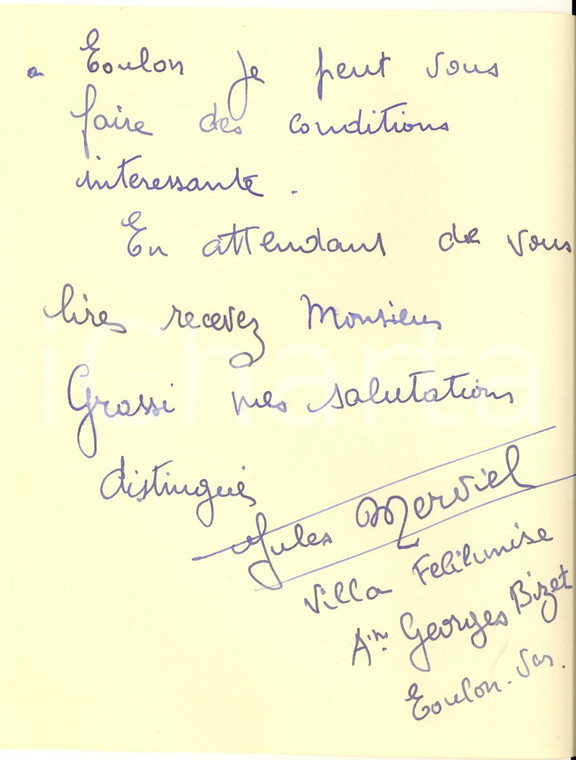 a Toulon je peut vous
faire des conditions
interessante.
En attendant de vous
lires recevez Monsieur
Grassi mes salutations
distingués
Jules Merviel
Villa Felihmise
Am Georges Bizet
Toulon. Var.
iCharta